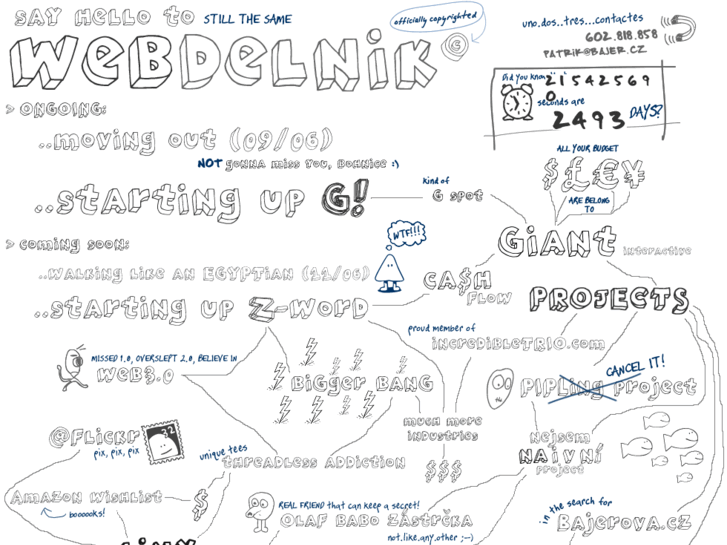 SAY HELLO TO STILL THE SAME
WEBDELNIK
officially copyrighted
©
uno..dos..tres...contactes
602.818.858
PATRIK@BAJER.CZ
Did you know 215425690
seconds are
2493 DAYS?
> ONGOING:
..moving out (09/06)
NOT gonna miss you, Bohnice :)
..starting up G!
kind of
G spot
ALL YOUR BUDGET
$£€¥
ARE BELONG
TO
GIANT interactive
> coming soon:
WTF!!!
..walking like an EGYPTIAN (11/06)
..starting up Z-WORD
CA$H
FLOW
PROJECTS
proud member of
incREDIBLETRIO.com
MISSED 1.0, OVERSLEPT 2.0, BELIEVE IN
WEB3.0
BIGGER BANG
CANCEL IT!
PIPLing project
much more
industries
$$$
Nejsem
NAIVNÍ
project
@Flickr
pix, pix, pix
22
unique tees
THREADLESS ADDICTION
Amazon Wishlist
boooooks!
$
REAL FRIEND that can keep a secret!
OLAF BABO ZÁSTRČKA
not..like..any..other ;--)
in the search for
Bajerova.cz